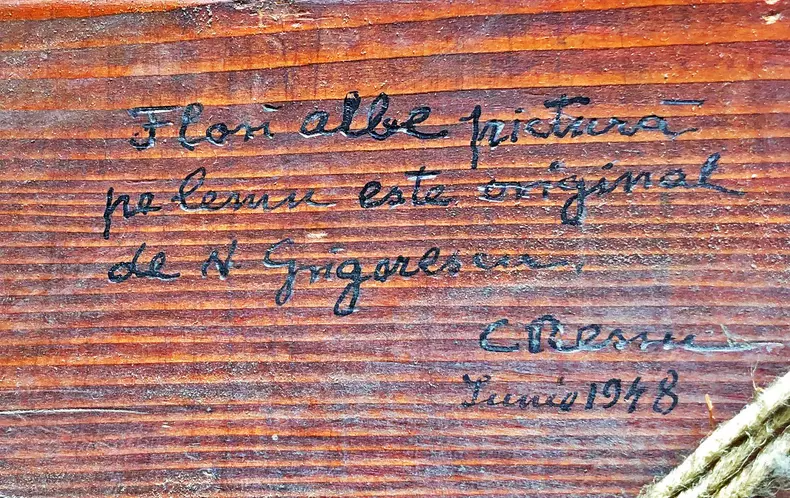 Flori albe pictură
pe lemn este original
de N. Grigorescu.
C Ressu
Iunie 1948